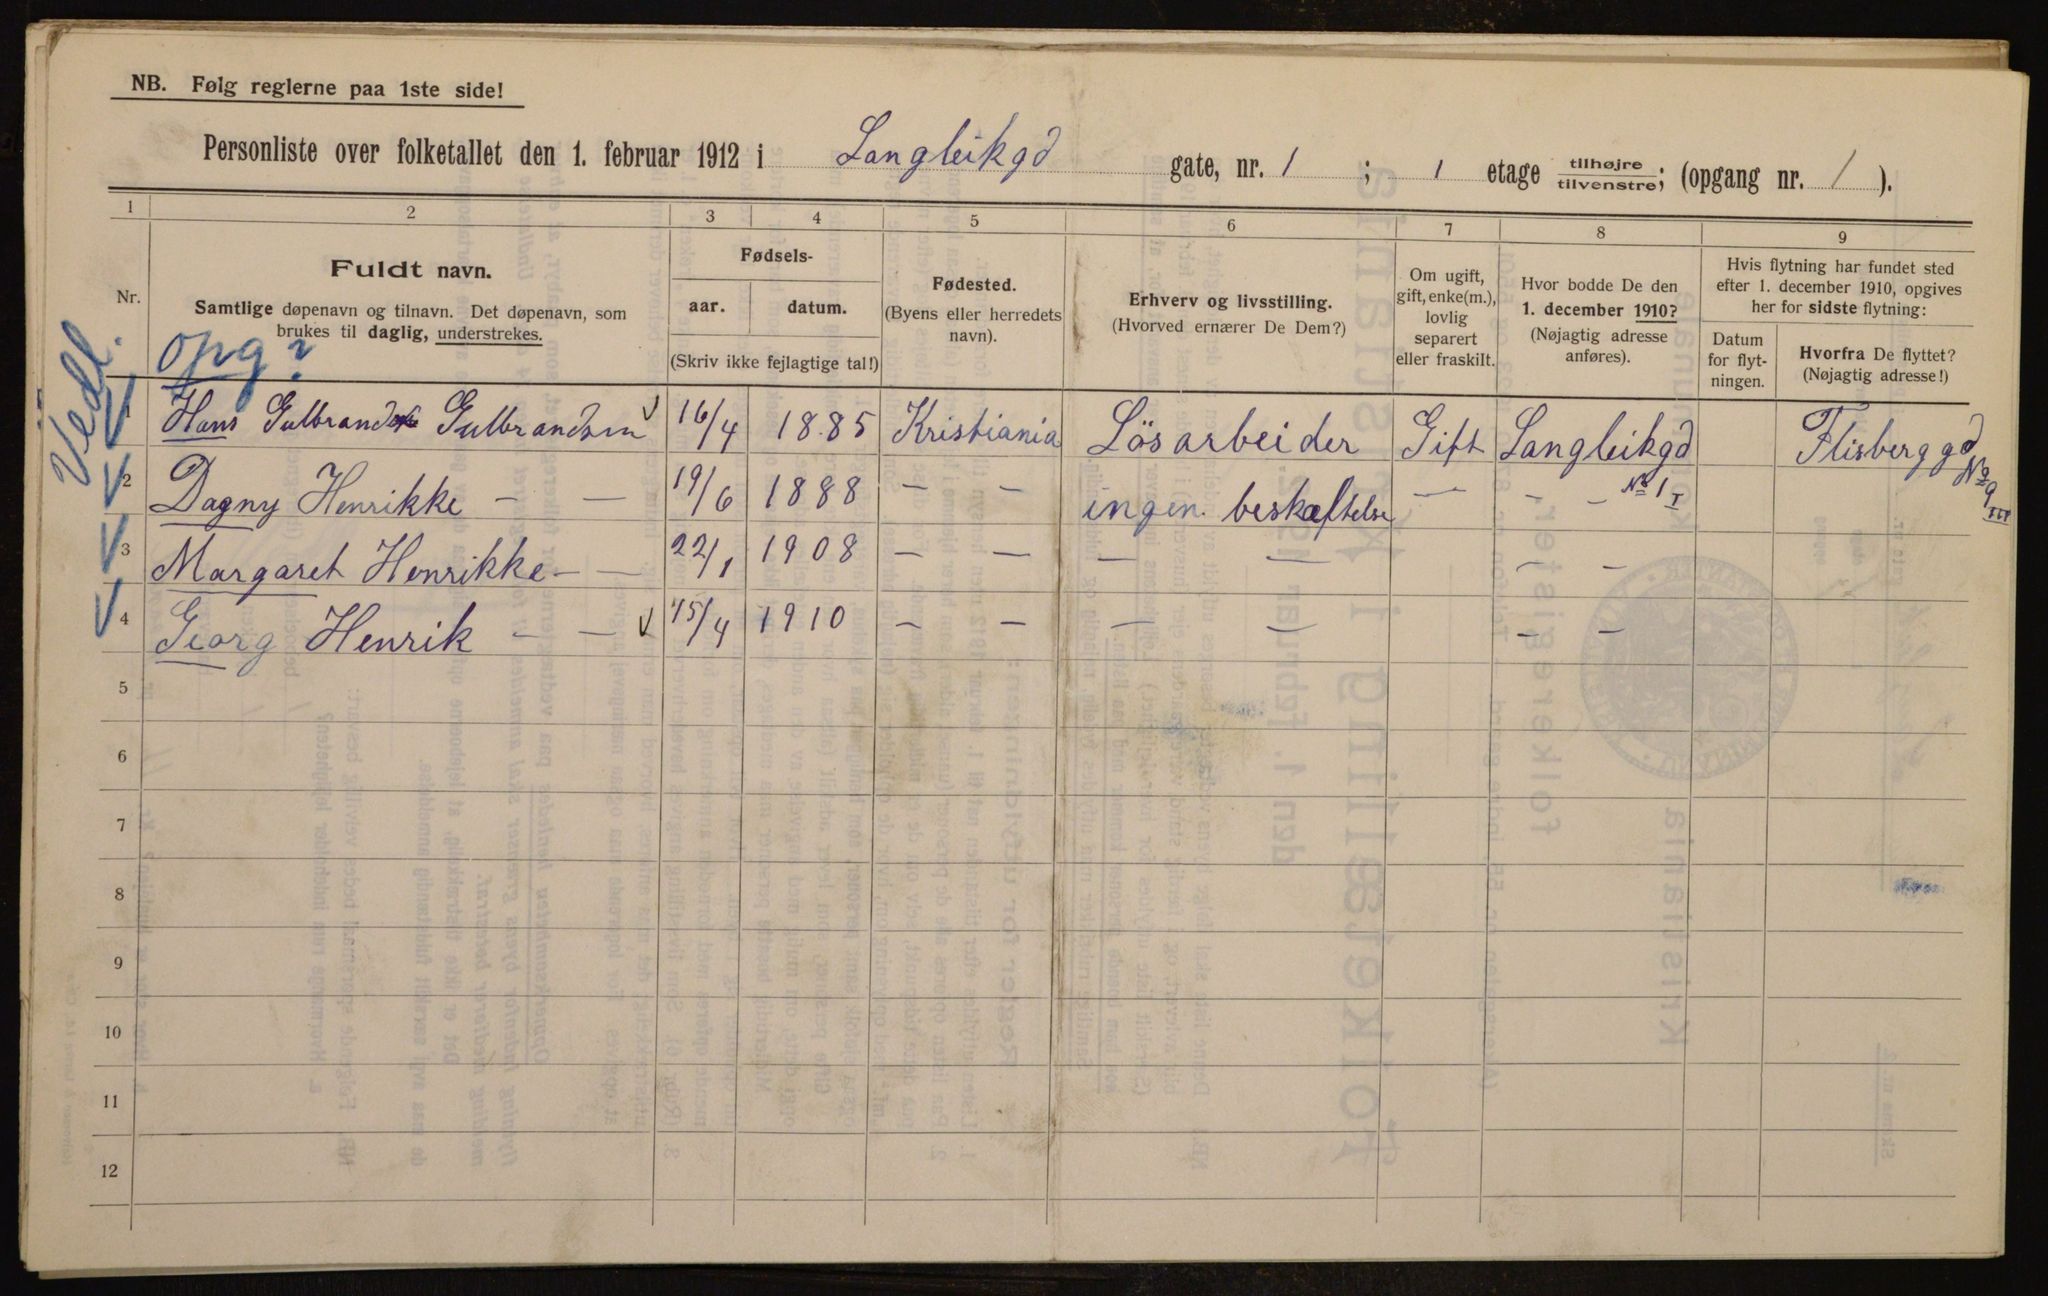 NB. Følg reglerne paa 1ste side!
Personliste over folketallet den 1. februar 1912 i Langleikgd gate, nr. 1 ; 1 etage tilhøjre/tilvenstre; (opgang nr. 1 ).
1 2 3 4 5 6 7 8 9
Nr.
Fuldt navn.
Samtlige døpenavn og tilnavn. Det døpenavn, som
brukes til daglig, understrekes.
Fødsels-
aar. datum.
(Skriv ikke fejlagtige tal!)
Fødested.
(Byens eller herredets
navn).
Erhverv og livsstilling.
(Hvorved ernærer De Dem?)
Om ugift,
gift, enke(m.),
lovlig
separert
eller fraskilt.
Hvor bodde De den
1. december 1910?
(Nøjagtig adresse
anføres).
Hvis flytning har fundet sted
efter 1. december 1910, opgives
her for sidste flytning:
Datum
for flyt-
ningen.
Hvorfra De flyttet?
(Nøjagtig adresse!)
Vedl.
opg?
1 Hans Gulbrand Gulbrandsen 16/4 1885 Kristiania Lösarbeider Gift Langleikgd Flisberggd
No 9 III
2 Dagny Henrikke — — 19/6 1888 — — ingen beskæftelse — — — No 1 I
3 Margaret Henrikke — — 22/1 1908 — — — — — —
4 Georg Henrik — — 15/4 1910 — — — — — —
5
6
7
8
9
10
11
12